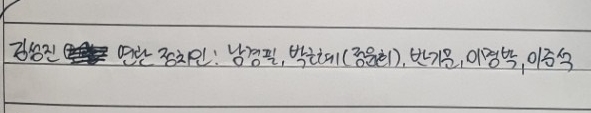 김성진 연관 정치인: 남경필, 박근혜(정윤회), 반기문, 이명박, 이준석